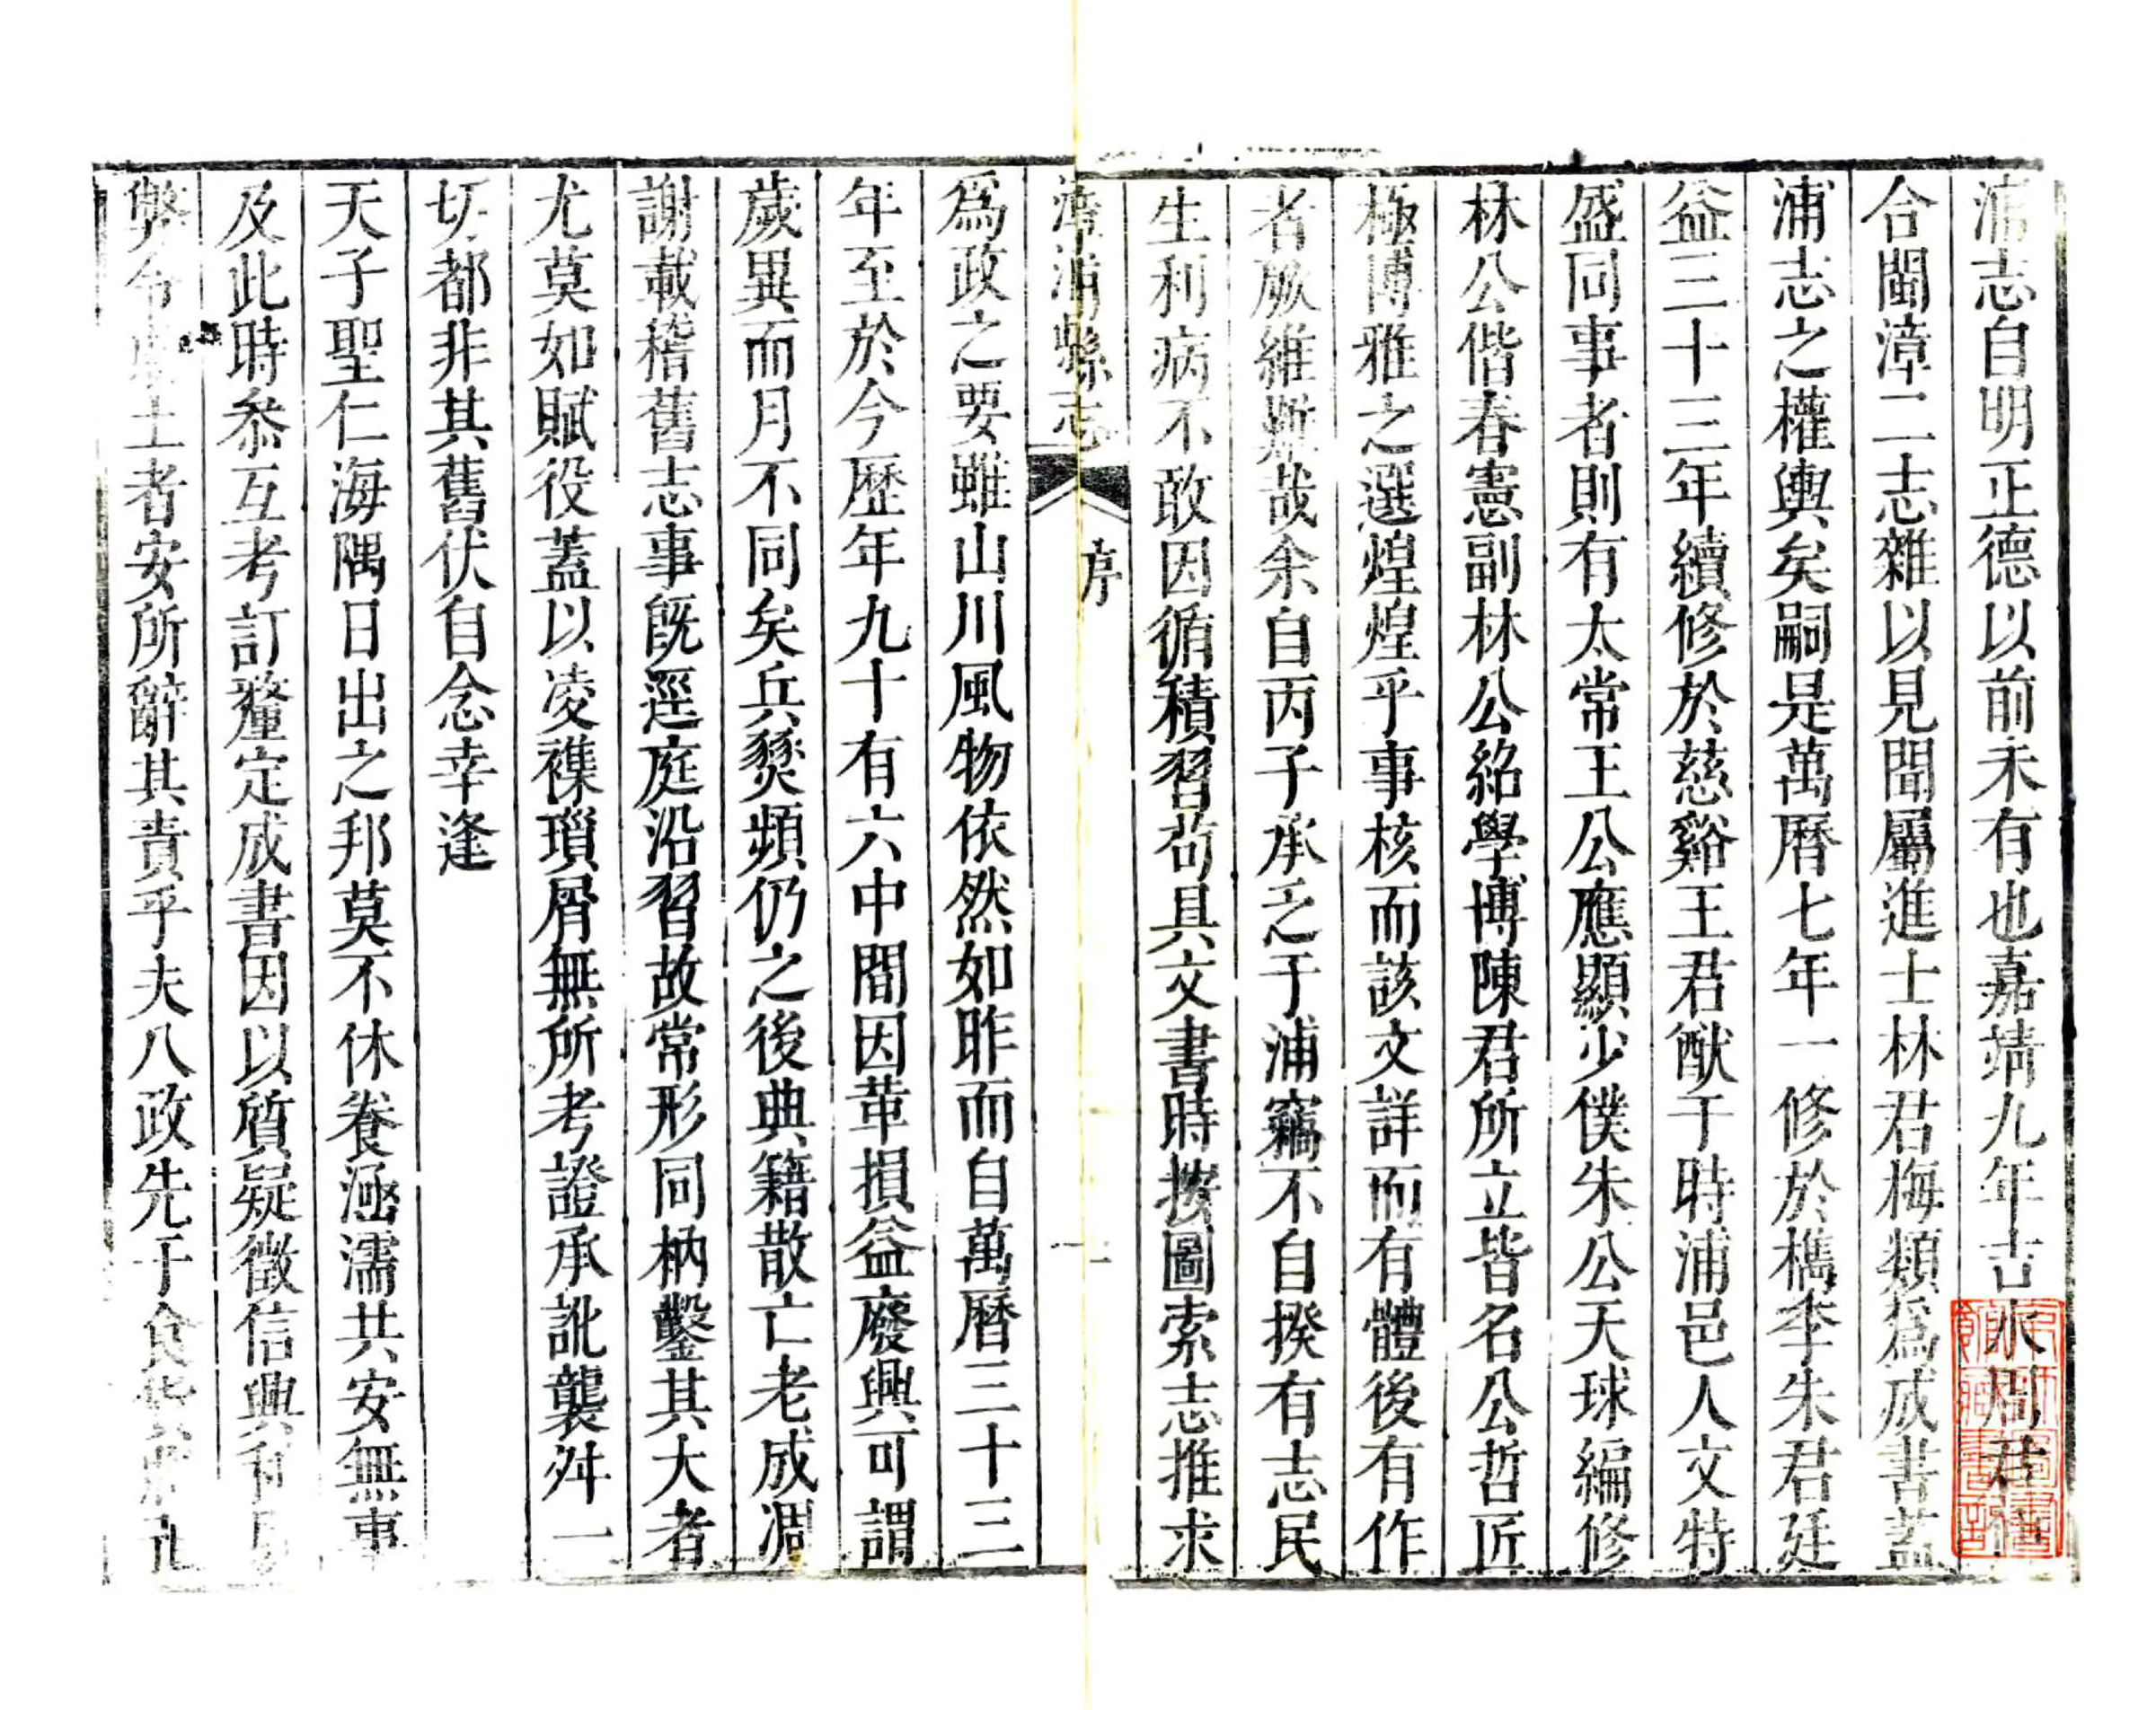 浦志自明正德以前未有也嘉靖九年吉水周君
合閩漳二志雜以見聞屬進士林君梅類爲成書蓋
浦志之權輿矣嗣是萬曆七年一修於檇李朱君廷
益三十三年續修於慈谿王君猷于時浦邑人文特
盛同事者則有太常王公應顯少僕朱公天球編修
林公偕春憲副林公紹學博陳君所立皆名公哲匠
極博雅之選煌煌乎事核而該文詳而有體後有作
者厥維艱哉余自丙子承乏于浦竊不自揆有志民
生利病不敢因循積習苟具文書時按圖索志推求
漳浦縣志
序
一
爲政之要雖山川風物依然如昨而自萬曆三十三
年至於今歷年九十有六中間因革損益廢興可謂
歲異而月不同矣兵燹頻仍之後典籍散亡老成凋
謝載稽舊志事旣逕庭沿習故常形同枘鑿其大者
尤莫如賦役蓋以凌襍瑣屑無所考證承訛襲舛一
切都非其舊伏自念幸逢
天子聖仁海隅日出之邦莫不休養涵濡共安無事
及此時叅互考訂釐定成書因以質疑徵信興利
弊今土者安所辭其責乎夫八政先于食貨